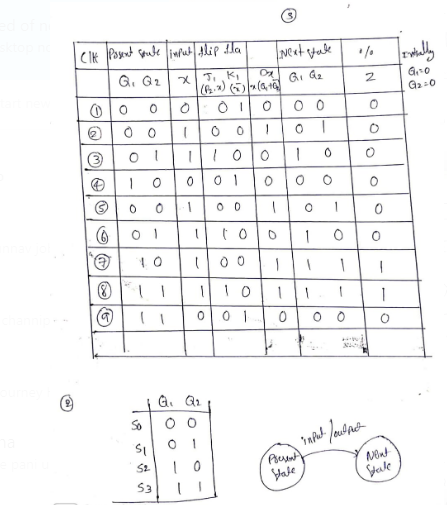 ③
Clk Present state input flip flo Next state o/p Initially
Q₁ Q₂ x J₁ K₁ D₂ Q₁ Q₂ Z Q₁=0
Q₂=0
① 0 0 0 0 1 0 0 0 0
② 0 0 1 0 0 1 0 1 0
③ 0 1 1 1 0 0 1 0 0
④ 1 0 0 0 1 0 0 0 0
⑤ 0 0 1 0 0 1 0 1 0
⑥ 0 1 1 1 0 0 1 0 0
⑦ 1 0 1 0 0 1 1 1 1
⑧ 1 1 1 1 0 1 1 1 1
⑨ 1 1 0 0 1 0 0 0 0
②
Q₁ Q₂
S0 0 0
S1 0 1
S2 1 0
S3 1 1
input/output
Present state
Next state